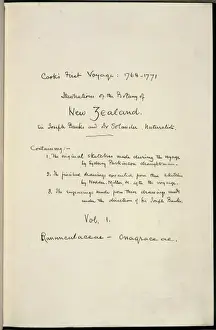 Cook's First Voyage: 1768-1771
Illustrations of the Botany of
New Zealand.
Sir Joseph Banks and Dr Solander Naturalists.
Containing:-
1. The original sketches made during the voyage
by Sydney Parkinson draughtsman.
2. The finished drawings executed from these sketches
by Nodder, Miller, &c. after the voyage.
3. The engravings made from these drawings
under the direction of Sir Joseph Banks.
Vol. 1.
Ranunculaceae - Onagraceae.